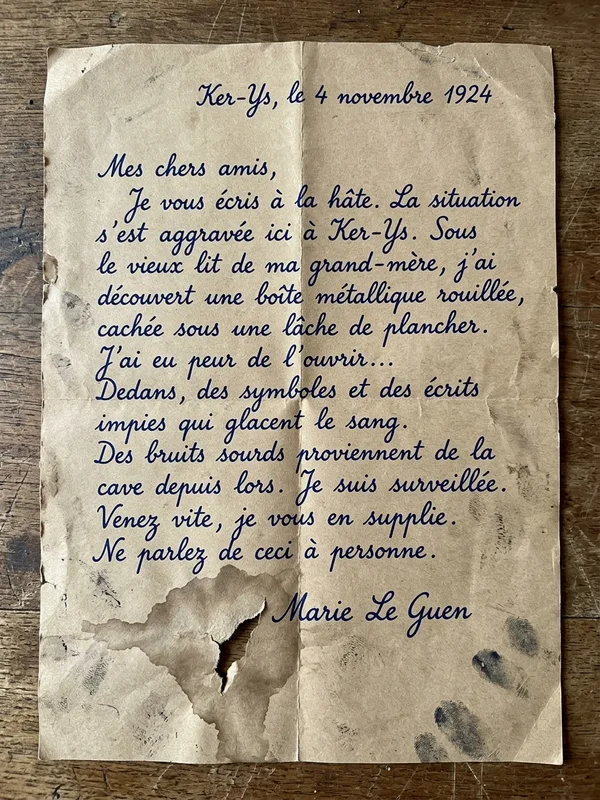 Ker-Ys, le 4 novembre 1924
Mes chers amis,
Je vous écris à la hâte. La situation
s'est aggravée ici à Ker-Ys. Sous
le vieux lit de ma grand-mère, j'ai
découvert une boîte métallique rouillée,
cachée sous une lâche de plancher.
J'ai eu peur de l'ouvrir...
Dedans, des symboles et des écrits
impies qui glacent le sang.
Des bruits sourds proviennent de la
cave depuis lors. Je suis surveillée.
Venez vite, je vous en supplie.
Ne parlez de ceci à personne.
Marie Le Guen